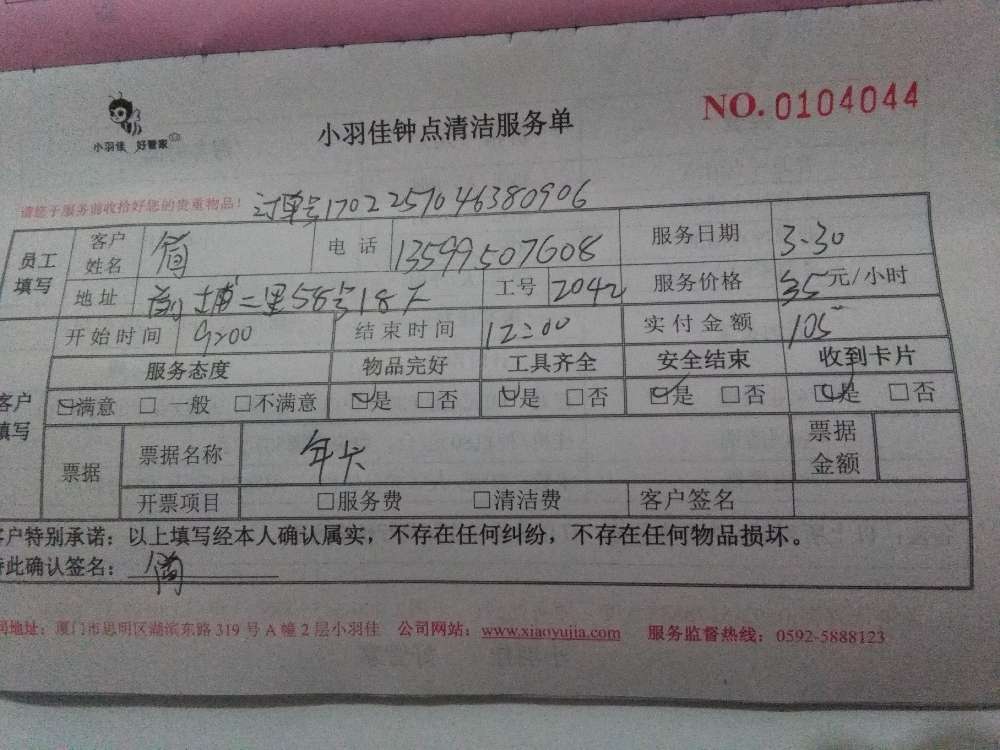 小羽佳 好管家
小羽佳钟点清洁服务单
NO.0104044
请您于服务前收拾好您的贵重物品!
订单号17022571046380906
员工填写 客户姓名 简 电话 13599507608 服务日期 3.30
地址 前埔二里58号187 工号 2042 服务价格 35元/小时
开始时间 9:00 结束时间 12:00 实付金额 105
服务态度 物品完好 工具齐全 安全结束 收到卡片
客户填写 ☑满意 □一般 □不满意 ☑是 □否 ☑是 □否 ☑是 □否 ☑是 □否
票据 票据名称 年卡 票据金额
开票项目 □服务费 □清洁费 客户签名
客户特别承诺：以上填写经本人确认属实，不存在任何纠纷，不存在任何物品损坏。
特此确认签名：简
司地址：厦门市思明区湖滨东路319号A幢2层小羽佳 公司网站：www.xiaoyujia.com 服务监督热线：0592-5888123